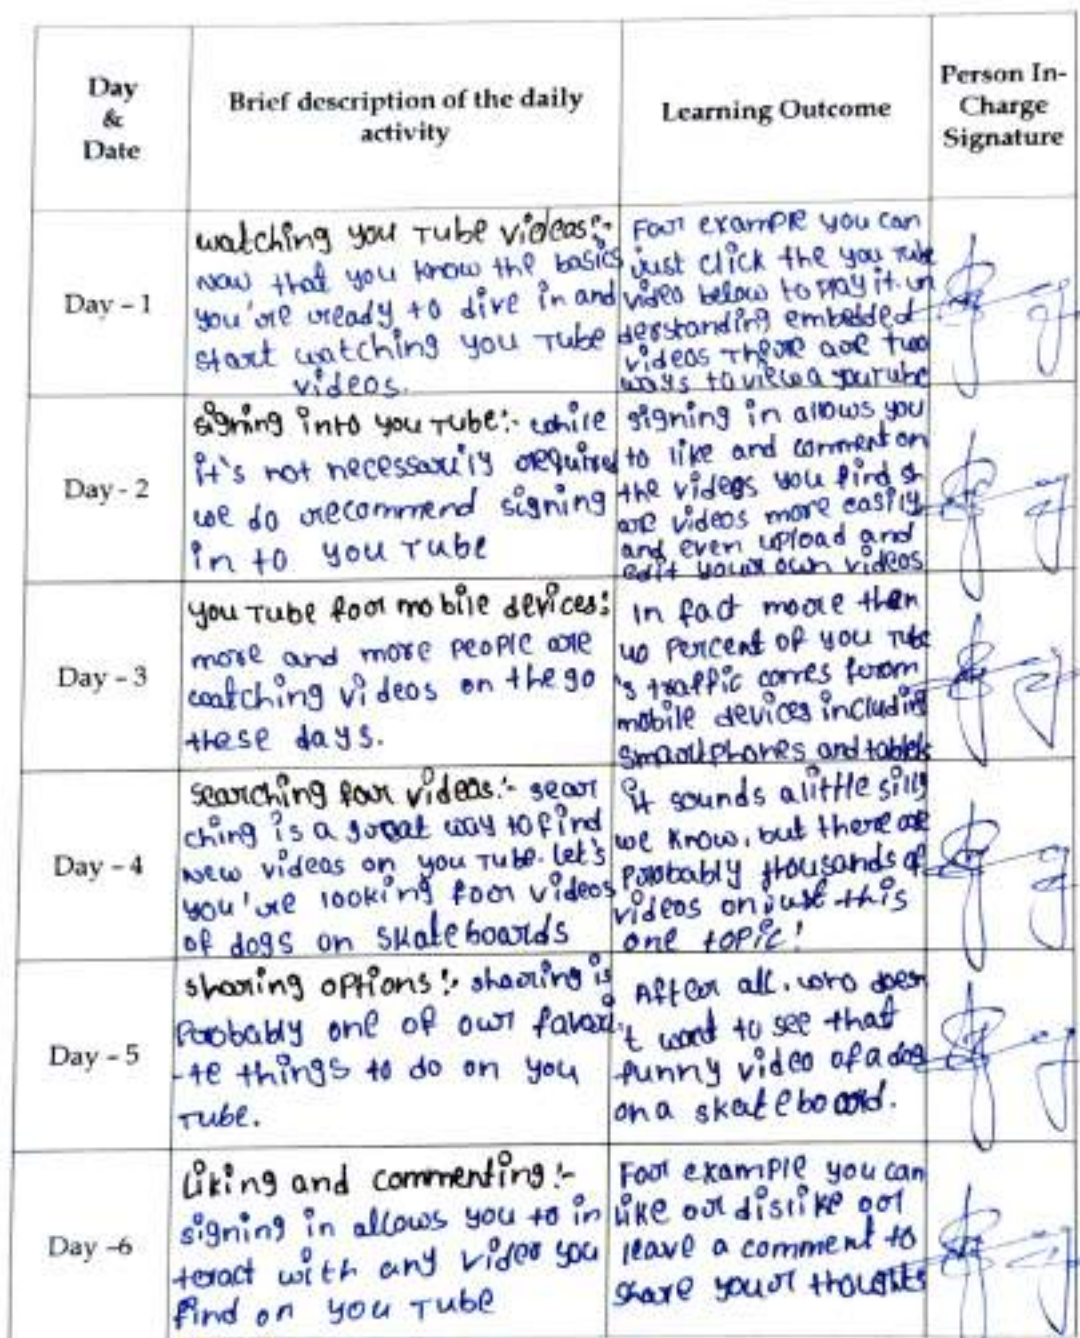 Day
&
Date
Brief description of the daily
activity
Learning Outcome
Person In-
Charge
Signature
Day - 1
watching you Tube videos:-
now that you know the basics
you're ready to dive in and
start watching you Tube
videos.
Foor example you can
just click the you Tube
video below to play it. un
derstanding embedded
videos There are two
ways to view a youtube
Day - 2
signing into you Tube:- while
it's not necessarily required
we do recommend signing
in to you Tube
signing in allows you
to like and comment on
the videos you find sh
are videos more easily
and even upload and
edit your own videos
Day - 3
you Tube foor mobile devices:
more and more people are
watching videos on the go
these days.
In fact moore then
40 percent of you Tube
's traffic comes from
mobile devices including
smartphones and tablets
Day - 4
searching foor videos:- sear
ching is a great way to find
new videos on you Tube. let's
you're looking foor videos
of dogs on skateboards
it sounds a little silly
we know, but there are
probably thousands of
videos on just this
one topic!
Day - 5
sharing options:- sharing is
probably one of our favori
-te things to do on you
Tube.
After all, who doesn
't want to see that
funny video of a dog
on a skateboard.
Day -6
Liking and commenting:-
signing in allows you to in
teract with any video you
find on you Tube
Foor example you can
like or dislike oor
leave a comment to
share your thoughts